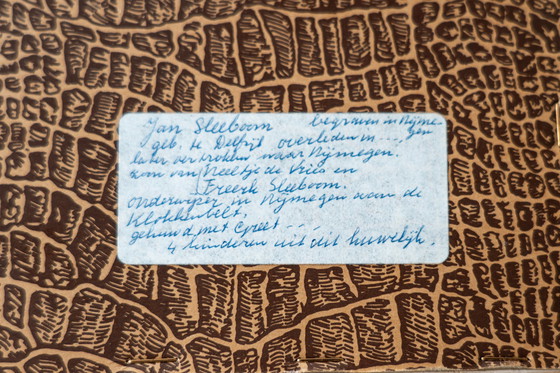 Jan Sleeboom begraven in Nijme-
geb. te Delfzijl overleden in ..., gen
later vertrokken naar Nijmegen.
zoon van Neeltje de Vries en
Freerk Sleeboom.
onderwijzer in Nijmegen aan de
Klokkenbelt.
gehuwd met Greet ...
4 kinderen uit dit huwelijk.